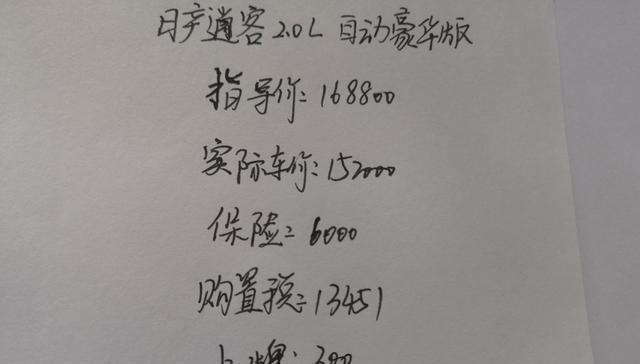 日产逍客 2.0L 自动豪华版
指导价:168800
实际车价:152000
保险:6000
购置税:13451
上牌:300